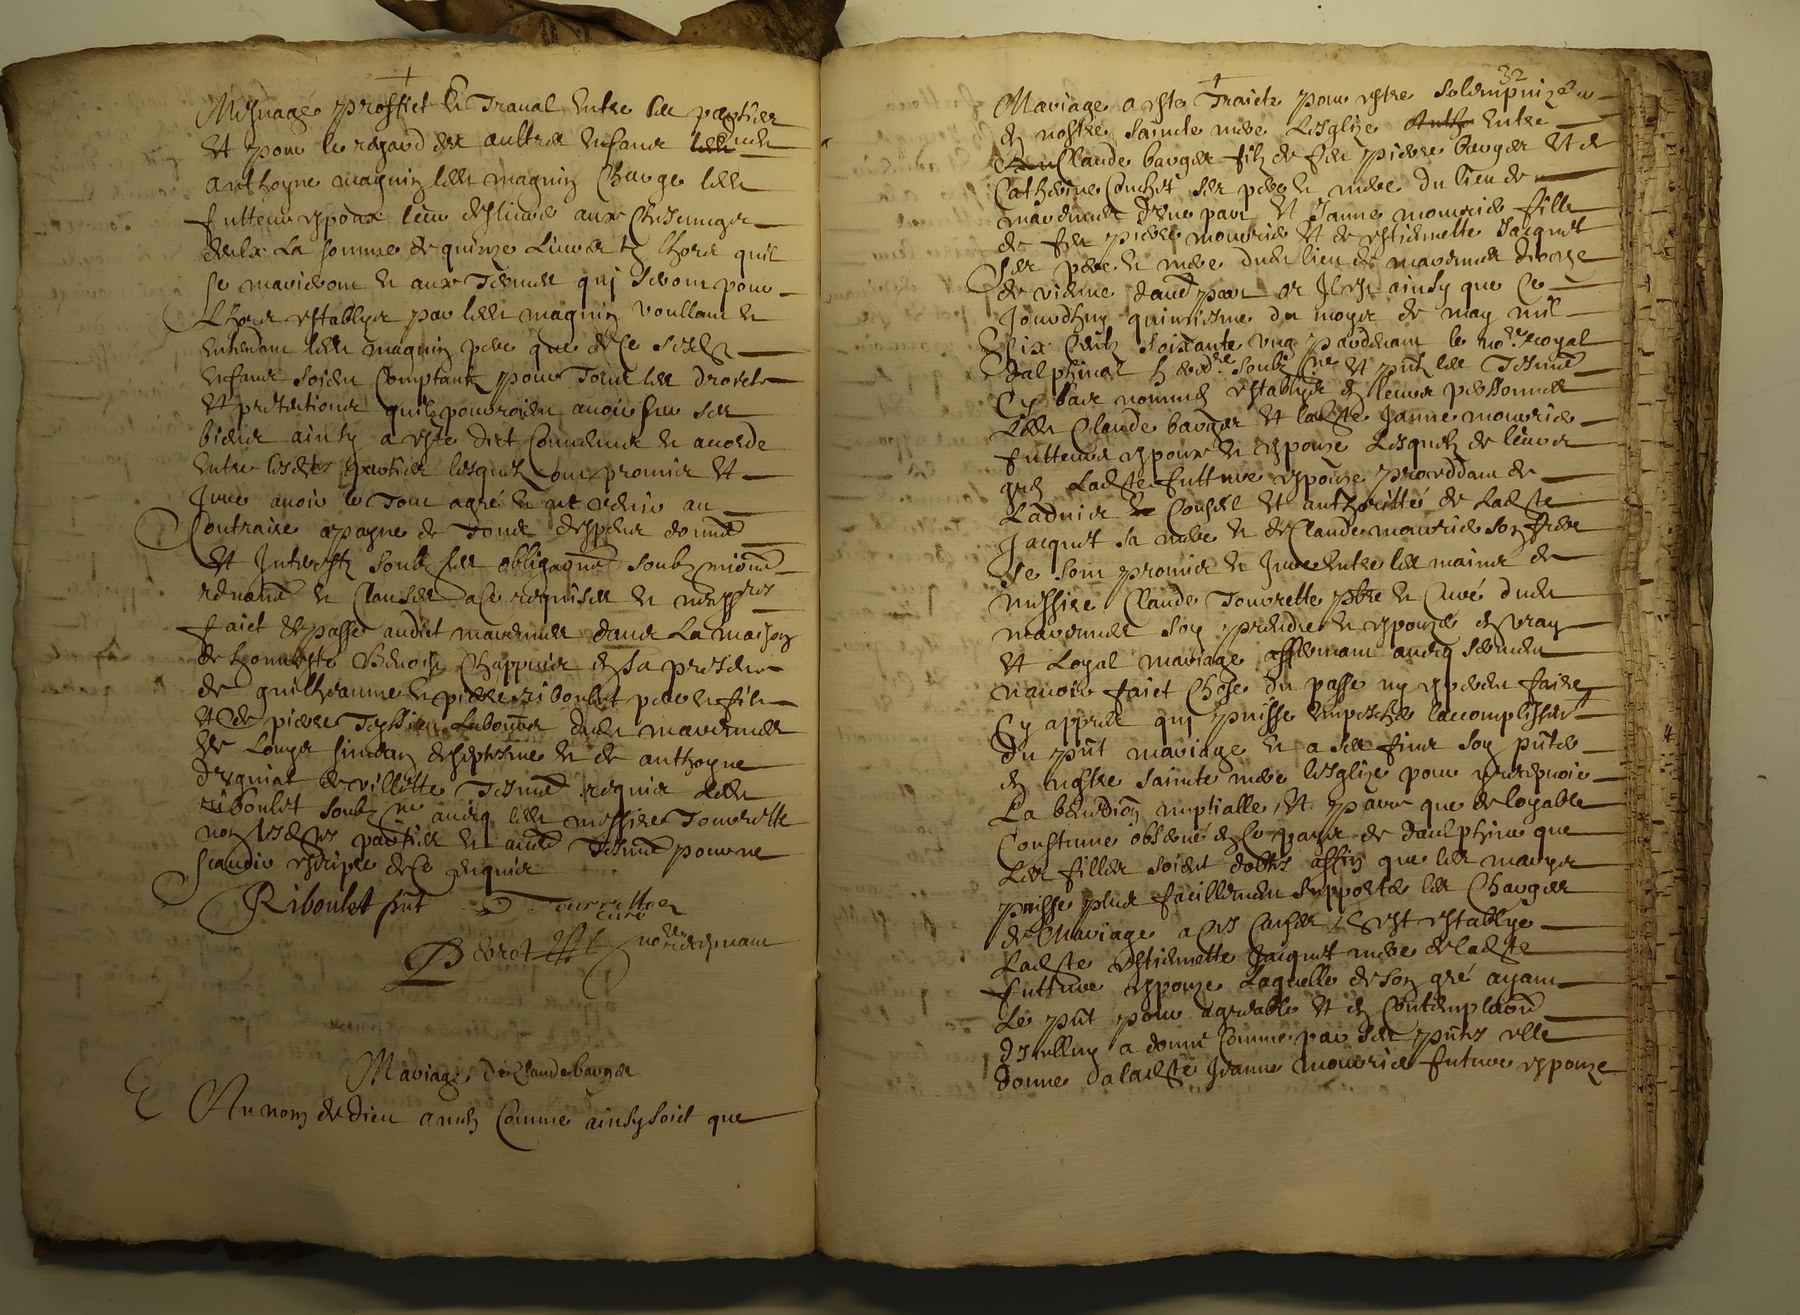 Mesnage proffict et Traval entre les parties
Et pour le regard des aultres enfans dud
anthoyne magnin led magnin Charge led
futteur espoux leur deslivre aux Chescungz
deulx La somme de quinze Livres tz lhors quil
se marieront et aux Termes qui seront pour
Lhors establys par led magnin voullant et
entendant led magnin pere que de ce sesd
enfans soient Comptantz pour Tous les droictz
Et prétentions quilz pourroient avoir sur ses
biens ainsy a esté dict Convenus et acordé
entre lesdites parties lesquelz ont promis Et
Juré avoir le Tout agré et ne venir au
Contraire a payne de Tous despens domma
Et Interestz soubz les obligaons soubzmions
renaons et Clauses a Ce requises et necessres
faict et passé audict mavernes dans La maison
de honneste Benoist Chappuis en la presence
de guilheaume et pierre riboulet pere et fils
Et de pierre Teyssier Laboureur dud mavernes
de Louys simean de septesme et de anthoyne
deguiat de villette Tesmoe requis led
riboulet soubzne aveq led messire Tourrette
non lesdites parties et autres Tesmoe pour ne
scavoir escripre de Ce enquis
Riboulet pnt Tourrette
curé
Berot nore recepvant
Mariage de Claude barger
Au nom de dieu amen Comme ainsy soict que
32
Mariage a esté Traicté pour estre solempnizé
en nostre saincte mere Lesglize entre
Claude barger filz de feu pierre barger Et de
Catherine Couchet ses pere et mere du lieu de
mavernes dune part Et Janne mourier fille
de feu pierre mourier Et de estiennette Jacquet
ses pere et mere dud lieu de mavernes dioceze
de vienne dautre part or Il est ainsy que Ce
Jourdhuy quinziesme du moys de may mil
Six Centz soixante ung pardevant le nore royal
dalphinal hered.re soubzne Et pntz les Tesmoe
Cy bas nommés establys en leurs personnes
Led Claude barger Et ladite Janne mourier
futteurs espoux et espouze Lesquelz de leurs
gréz Ladite future espouze proceddant de
Ladvis et Conseil Et authoritté de Ladite
Jacquet sa mere et de Claude mourier son frere
se sont promis et Juré entre les mains de
messire Claude Tourrette ptre et Curé dud
mavernes soy prendre et espouzer en vray
Et Loyal mariage affermant aveq serment
navoir faict Chose du passé ny esperer faire
Cy appres qui puisse empescher laccomplissent
du pnt mariage et a ses fins soy pnter
en nostre saincte mere lesglize pour y recepvoir
La benedion nuptialle Et parce que de loyable
Coustume observé en Ce pays de daulphiné que
Les filles soient dottés affin que les marys
puisse plus facillement supporter les Charges
de Mariage a Ces Causes Cest establye
Ladite estiennette Jacquet mere de ladite
futture espouze Laquelle de son gré ayant
Le pnt pour agreable Et en Contemplaon
dicelluy a donné Comme par Ses pntes elle
donne a ladite Jeanne mourier future espouze